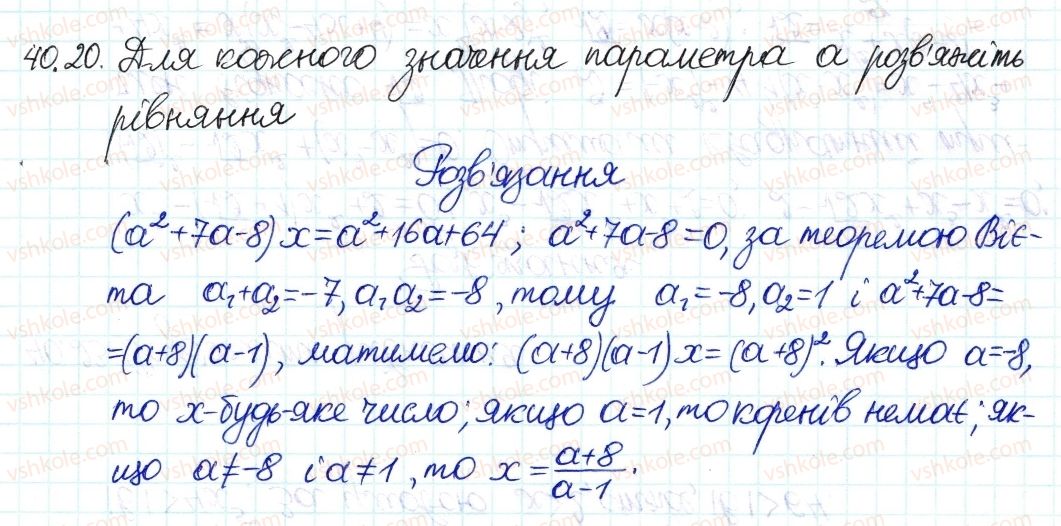 40.20. Для кожного значення параметра a розв'яжіть
рівняння
Розв'язання
(a²+7a-8)x=a²+16a+64; a²+7a-8=0, за теоремою Віє-
та a₁+a₂=-7, a₁a₂=-8, тому a₁=-8, a₂=1 і a²+7a-8=
=(a+8)(a-1), матимемо: (a+8)(a-1)x=(a+8)². Якщо a=-8,
то x-будь-яке число; якщо a=1, то коренів немає; як-
що a≠-8 і a≠1, то x=\frac{a+8}{a-1}.
vshkole.com